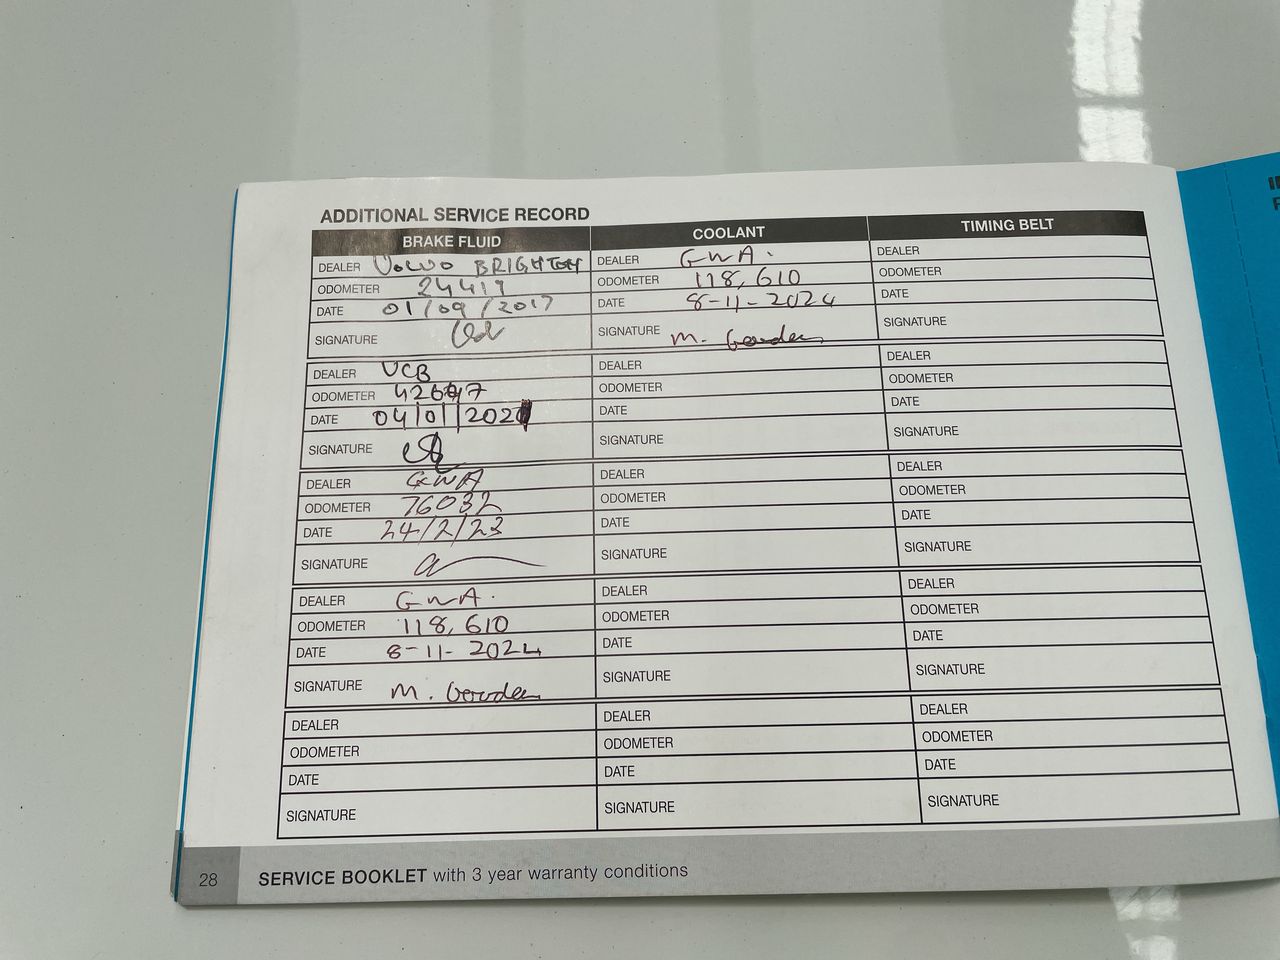 ADDITIONAL SERVICE RECORD
BRAKE FLUID COOLANT TIMING BELT
DEALER VOLVO BRIGHTON DEALER GWA. DEALER
ODOMETER 24417 ODOMETER 118,610 ODOMETER
DATE 01/09/2017 DATE 8-11-2024 DATE
SIGNATURE SIGNATURE M. Gowden SIGNATURE
DEALER VCB DEALER DEALER
ODOMETER ODOMETER ODOMETER
DATE 04/01/2021 DATE DATE
SIGNATURE SIGNATURE SIGNATURE
DEALER GWA DEALER DEALER
ODOMETER 76032 ODOMETER ODOMETER
DATE 24/2/23 DATE DATE
SIGNATURE SIGNATURE SIGNATURE
DEALER GWA. DEALER DEALER
ODOMETER 118,610 ODOMETER ODOMETER
DATE 8-11-2024 DATE DATE
SIGNATURE M. Gowden SIGNATURE SIGNATURE
DEALER DEALER DEALER
ODOMETER ODOMETER ODOMETER
DATE DATE DATE
SIGNATURE SIGNATURE SIGNATURE
28 SERVICE BOOKLET with 3 year warranty conditions